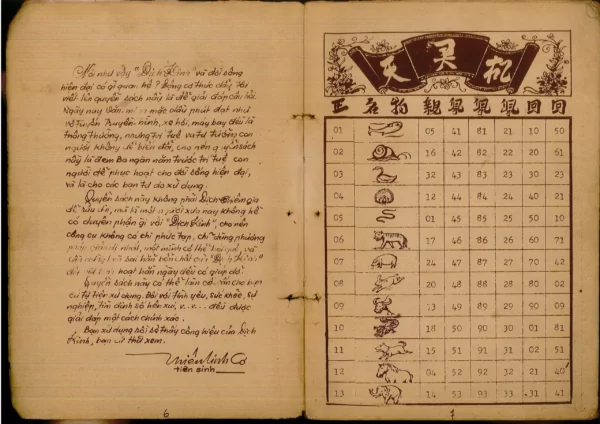 Nói như vậy "Dịch Kinh" và đời sống
hiện đại có gì quan hệ? Động cơ thúc đẩy tôi
viết lên quyển sách nầy là để giải đáp câu hỏi.
Ngày nay dầu phát đạt như
vô tuyến truyền hình, xe hơi, máy bay đều là
thông thường, nhưng trí tuệ và tư tưởng con
người không dễ biến đổi, cho nên quyển sách
nầy là đem ba ngàn năm trước trí tuệ con
người để phục hoạt cho đời sống hiện đại,
và là cho các bạn tự do xử dụng.
Quyển sách nầy không phải Dịch
để mà là một người xưa nay không hề
có duyên phận gì với "Dịch Kinh", cho nên
công cụ không có chi phức tạp, chỉ dùng phương
pháp nhất, một mình có thể và
bản chất của "Dịch Kinh"
hoạt hằng ngày đều có giúp đỡ.
Quyển sách nầy có thể làm cố vấn cho bạn
cứ tự tiện xử dụng. Đối với tình yêu, sức khỏe, sự
nghiệp, tìm dính số hên xui, v.v... đều được
giải đáp một cách chính xác.
Bạn xử dụng rồi sẽ thấy công hiệu của Dịch
Kinh, bạn cứ thử xem.
Thiên Linh Cơ
tiên sinh
6
天 灵 机
名 物
回 回
01 05 41 81 21 10 50
02 16 42 82 22 20 61
03 32 43 83 23 30 23
04 12 44 84 24 40 21
05 01 45 85 25 50 10
06 17 46 86 26 60 71
07 24 47 87 27 70 42
08 20 48 88 28 80 02
09 13 49 89 29 90 09
10 18 50 90 30 01 81
11 15 51 91 31 02 51
12 04 52 92 32 21 40
13 14 53 93 33 31 41
7